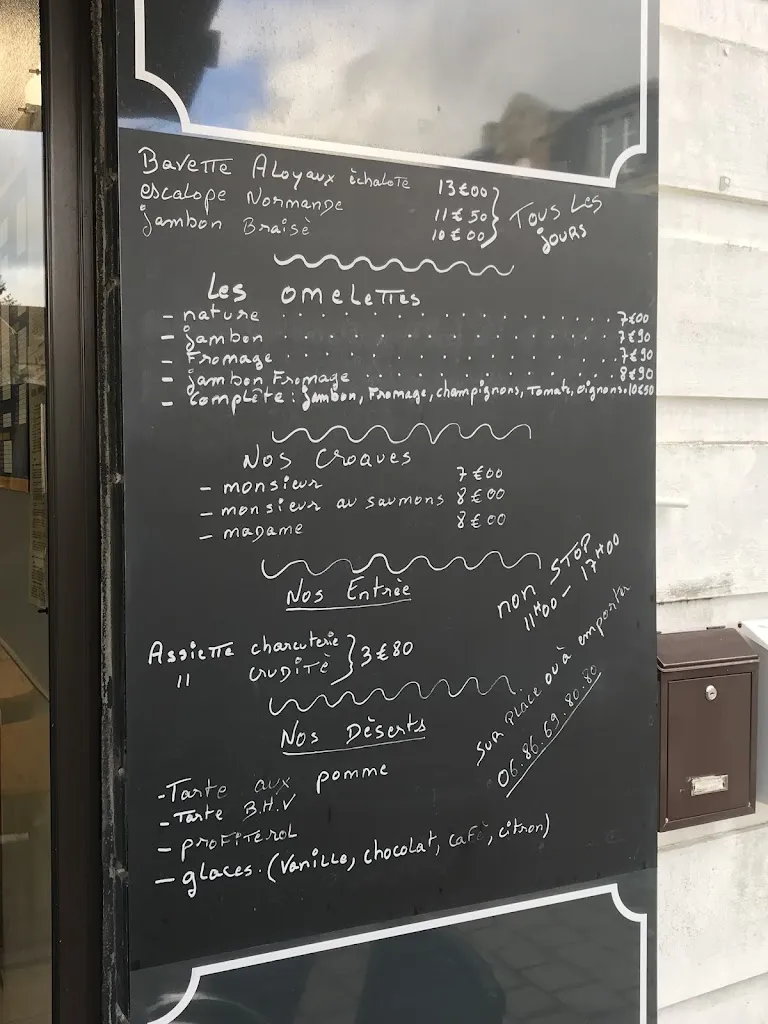 Bavette Aloyaux èchalote 13€00
escalope Normande 11€50
jambon Braisè 10€00
Tous Les
jours
Les omelettes
- nature . . . . . . . . . . . . . . . . 7€00
- jambon . . . . . . . . . . . . . . . . 7€90
- Fromage . . . . . . . . . . . . . . . 7€90
- jambon Fromage . . . . . . . . . . . 8€90
- complète : jambon, Fromage, champignons, Tomate, oignons. 10€50
Nos Croques
- monsieur 7€00
- monsieur au saumons 8€00
- madame 8€00
non STOP
11H00 - 17H00
Nos Entrèe
Assiette charcuterie
" cruditè } 3€80
sur place ou à emporter
06.86.69.80.80
Nos Dèserts
- Tarte aux pomme
- Tarte B.H.V
- profiterol
- glaces. (Vanille, chocolat, cafè, citron)